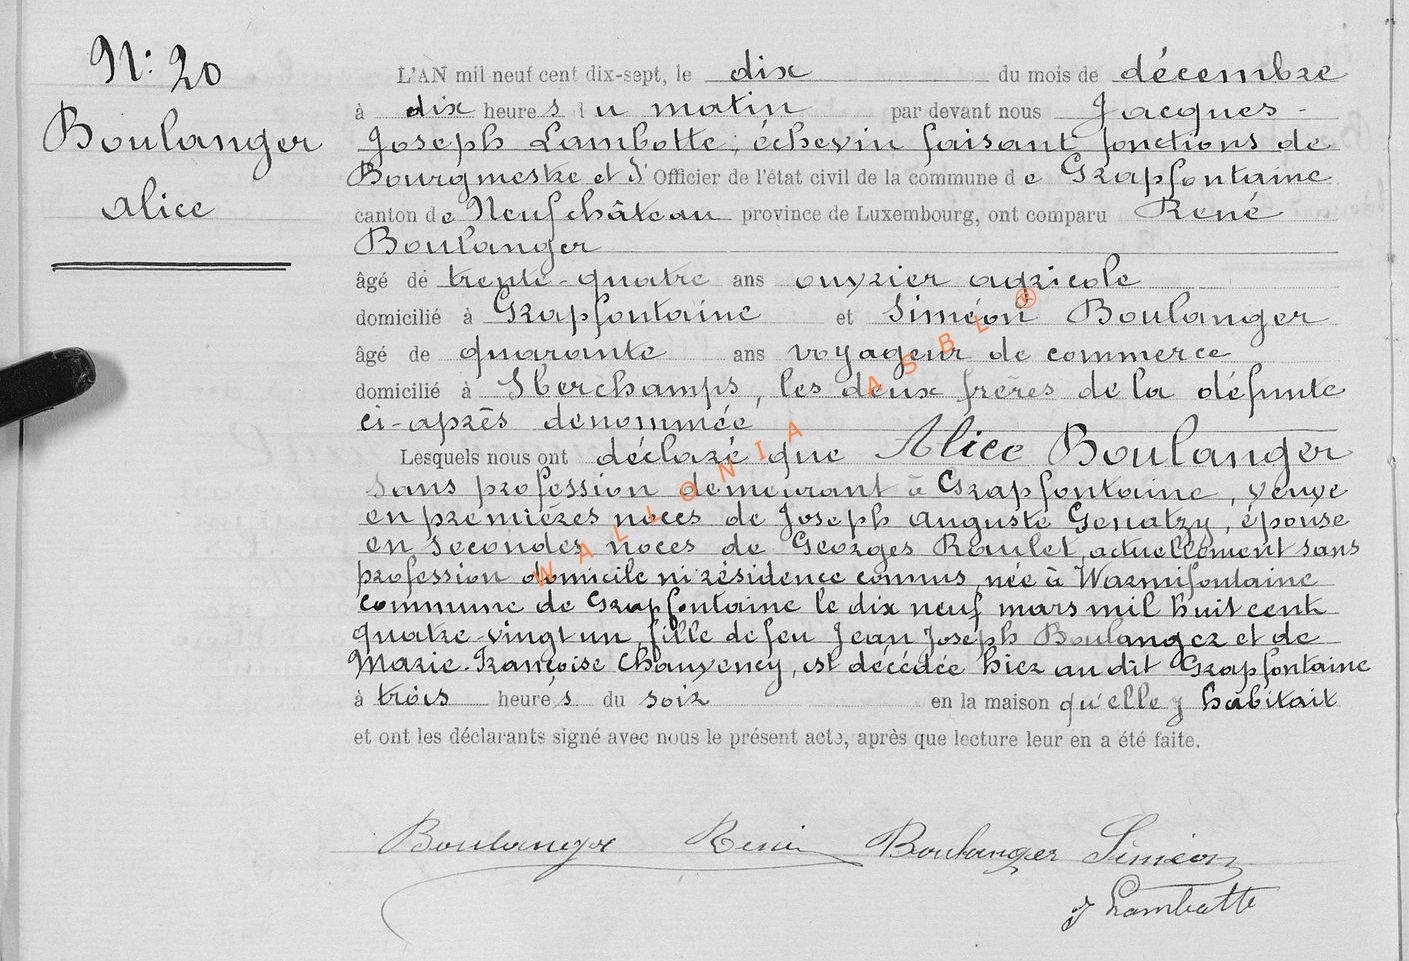 N: 20
Boulanger
Alice
L'AN mil neuf cent dix-sept, le dix du mois de décembre
à dix heures du matin par devant nous Jacques-
Joseph Lambotte, échevin faisant fonctions de
Bourgmestre et d'Officier de l'état civil de la commune de Grapfontaine
canton de Neufchâteau province de Luxembourg, ont comparu René
Boulanger
âgé de trente-quatre ans ouvrier agricole
domicilié à Grapfontaine et Siméon Boulanger
âgé de quarante ans voyageur de commerce
domicilié à Sberchamps, les deux frères de la défunte
ci-après denommée
Lesquels nous ont déclaré que Alice Boulanger
sans profession demeurant à Grapfontaine, veuve
en premières noces de Joseph Auguste Genatzy, épouse
en secondes noces de Georges Raulet, actuellement sans
profession domicile ni résidence connus, née à Warmifontaine
commune de Grapfontaine le dix neuf mars mil huit cent
quatre-vingt un, fille de feu Jean Joseph Boulanger et de
Marie-Françoise Chauvency, est décédée hier au dit Grapfontaine
à trois heures du soir en la maison qu'elle y habitait
et ont les déclarants signé avec nous le présent acte, après que lecture leur en a été faite.
Boulanger René Boulanger Siméon
J Lambotte
WALLONIA ASBL ®